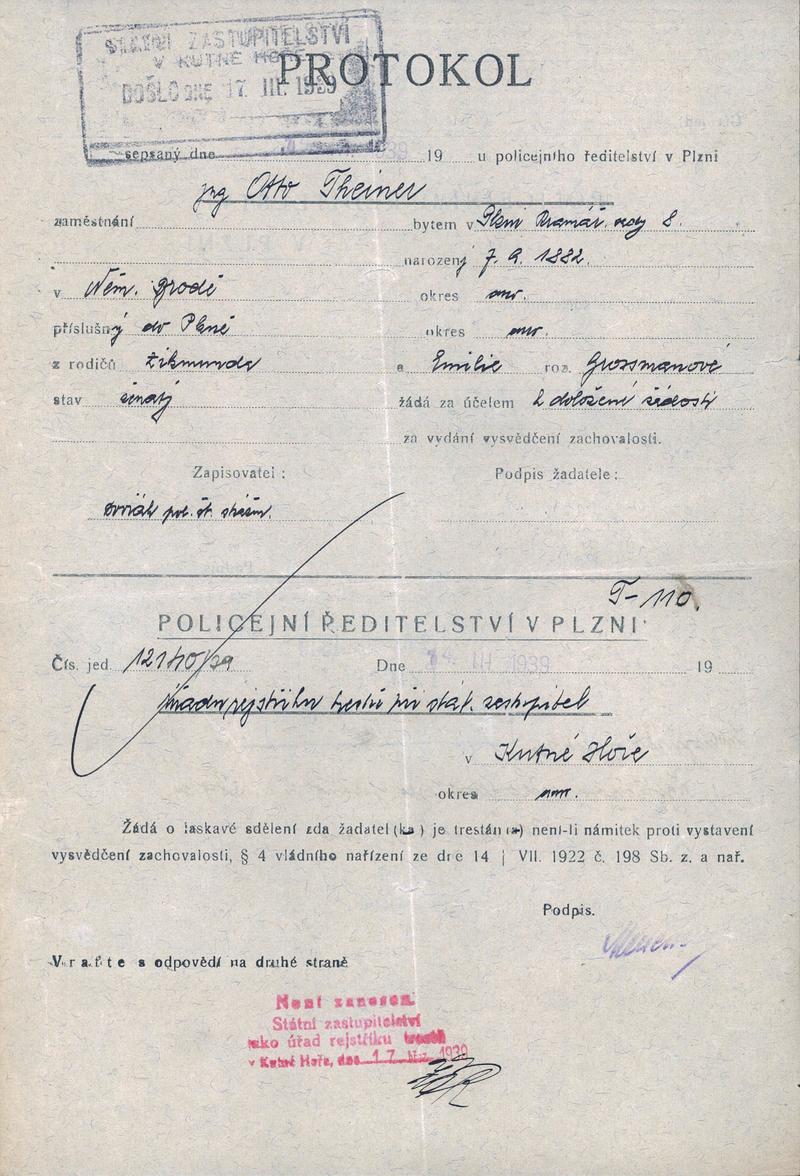 STÁTNÍ ZASTUPITELSTVÍ
V KUTNÉ HOŘE
DOŠLO DNE 17. III. 1939
PROTOKOL
sepsaný dne 19 u policejního ředitelství v Plzni
ing Otto Theiner
zaměstnání bytem v Plzni Kramář. sady 8.
narozený 7. 9. 1882.
v Něm. Brodě okres
příslušný do Plzně okres
z rodičů Zikmunda a Emilie roz. Grossmanové
stav ženatý žádá za účelem k doložení žádosti
za vydání vysvědčení zachovalosti.
Zapisovatel: Podpis žadatele:
T-110.
POLICEJNÍ ŘEDITELSTVÍ V PLZNI
Čís. jed. Dne 14. III 1939 19
úřadu rejstříku trestů při stát. zastupitel
v Kutné Hoře
okres
Žádá o laskavé sdělení zda žadatel(ka) je trestán(a) není-li námitek proti vystavení
vysvědčení zachovalosti, § 4 vládního nařízení ze dne 14 VII. 1922 č. 198 Sb. z. a nař.
Podpis.
Vraťte s odpovědí na druhé straně
Není zanesen.
Státní zastupitelství
jako úřad rejstříku trestů
v Kutné Hoře, dne 17. 1939